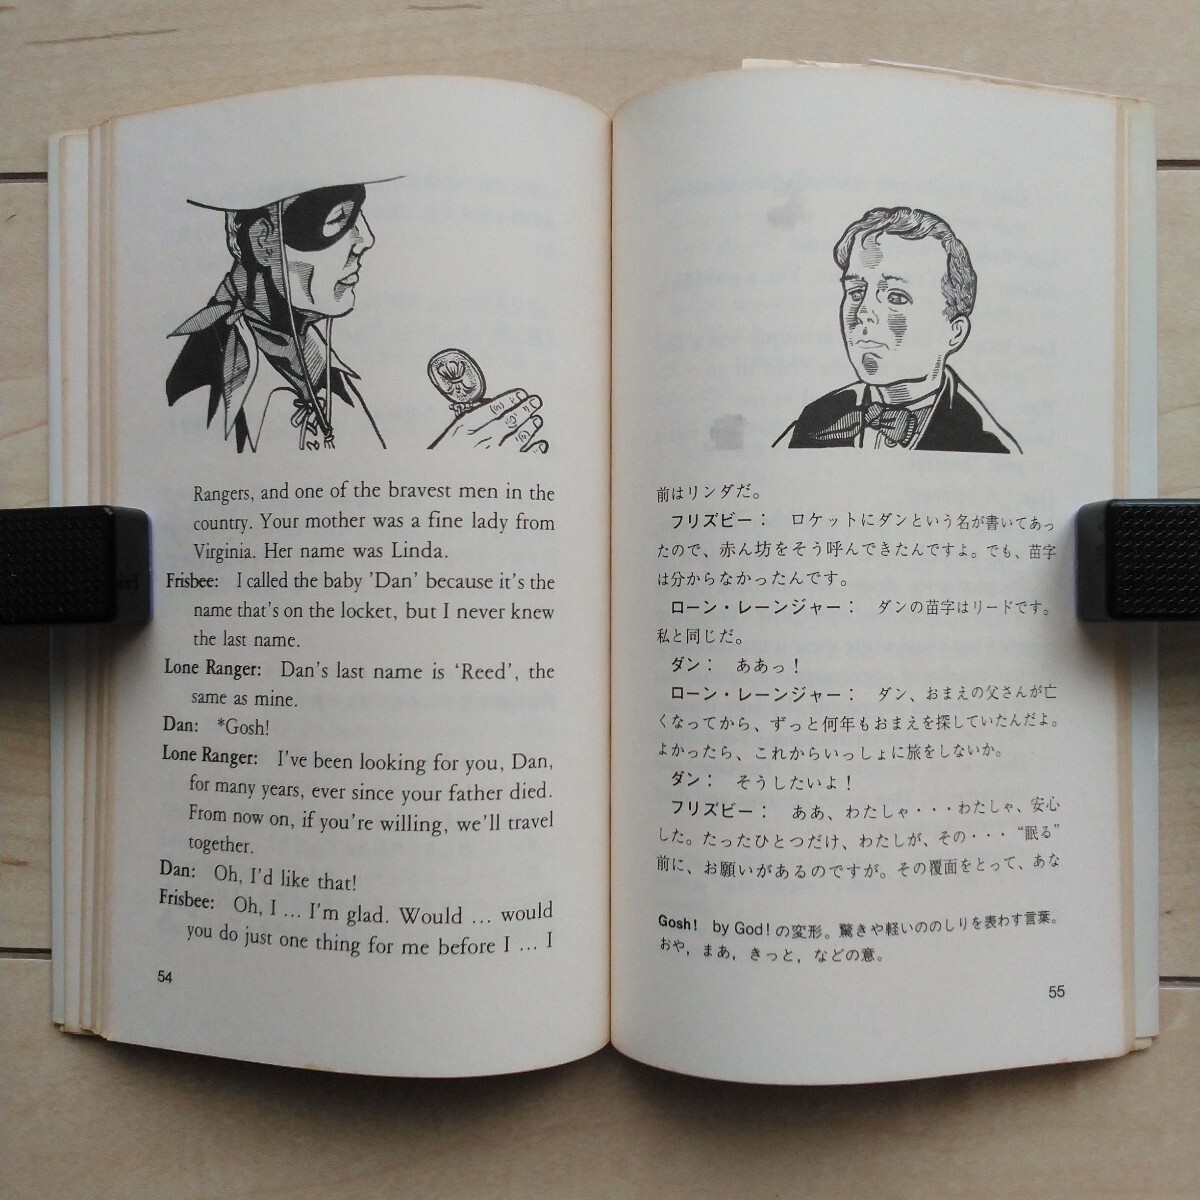 Rangers, and one of the bravest men in the
country. Your mother was a fine lady from
Virginia. Her name was Linda.
Frisbee: I called the baby 'Dan' because it's the
name that's on the locket, but I never knew
the last name.
Lone Ranger: Dan's last name is 'Reed', the
same as mine.
Dan: *Gosh!
Lone Ranger: I've been looking for you, Dan,
for many years, ever since your father died.
From now on, if you're willing, we'll travel
together.
Dan: Oh, I'd like that!
Frisbee: Oh, I ... I'm glad. Would ... would
you do just one thing for me before I ... I
54
前はリンダだ。
フリズビー： ロケットにダンという名が書いてあっ
たので、赤ん坊をそう呼んできたんですよ。でも、苗字
は分からなかったんです。
ローン・レーンジャー： ダンの苗字はリードです。
私と同じだ。
ダン： ああっ！
ローン・レーンジャー： ダン、おまえの父さんが亡
くなってから、ずっと何年もおまえを探していたんだよ。
よかったら、これからいっしょに旅をしないか。
ダン： そうしたいよ！
フリズビー： ああ、わたしゃ・・・わたしゃ、安心
した。たったひとつだけ、わたしが、その・・・“眠る”
前に、お願いがあるのですが。その覆面をとって、あな
Gosh! by God!の変形。驚きや軽いののしりを表わす言葉。
おや，まあ，きっと，などの意。
55